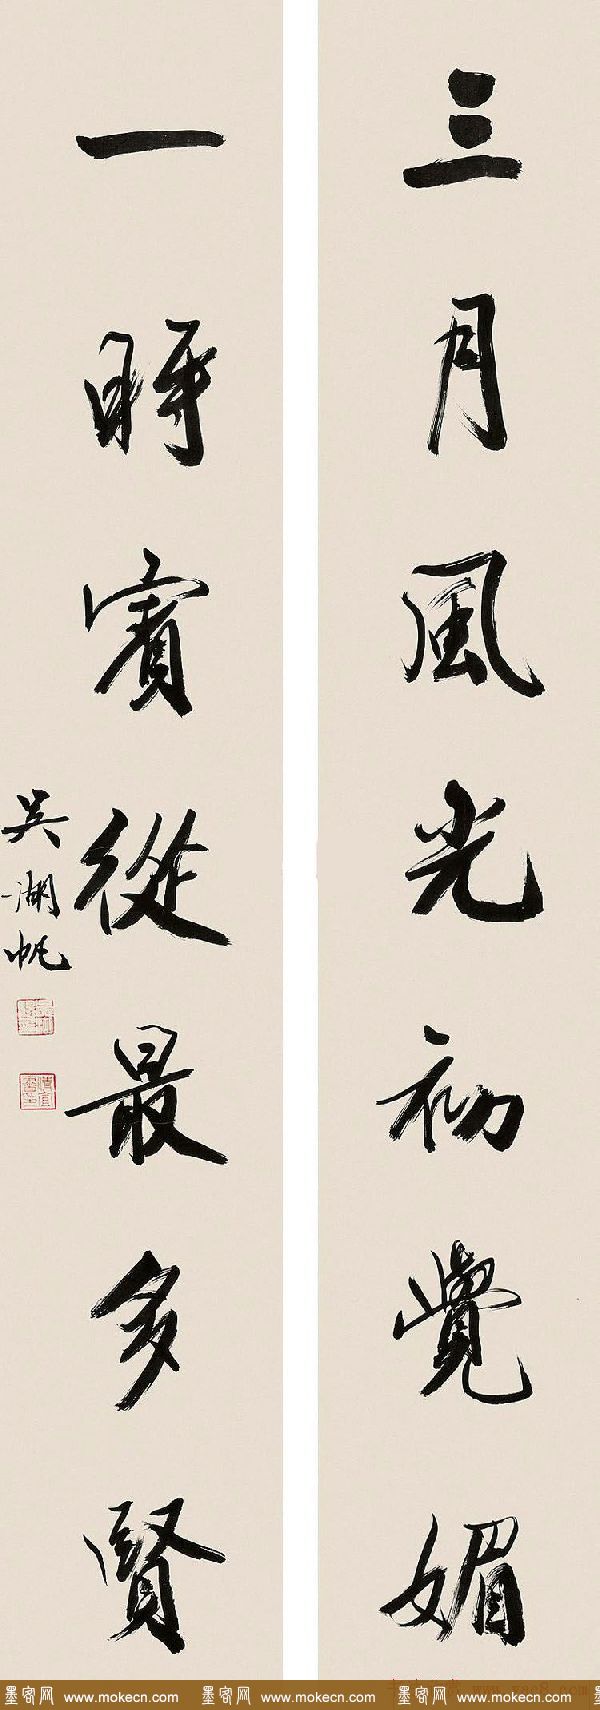 三月風光初覺媚
一時賓從最多賢
吳湖帆
墨客网 www.mokecn.com 墨客网 www.mokecn.com 墨客网 www.mokecn.com 墨客网 www.mokecn.com